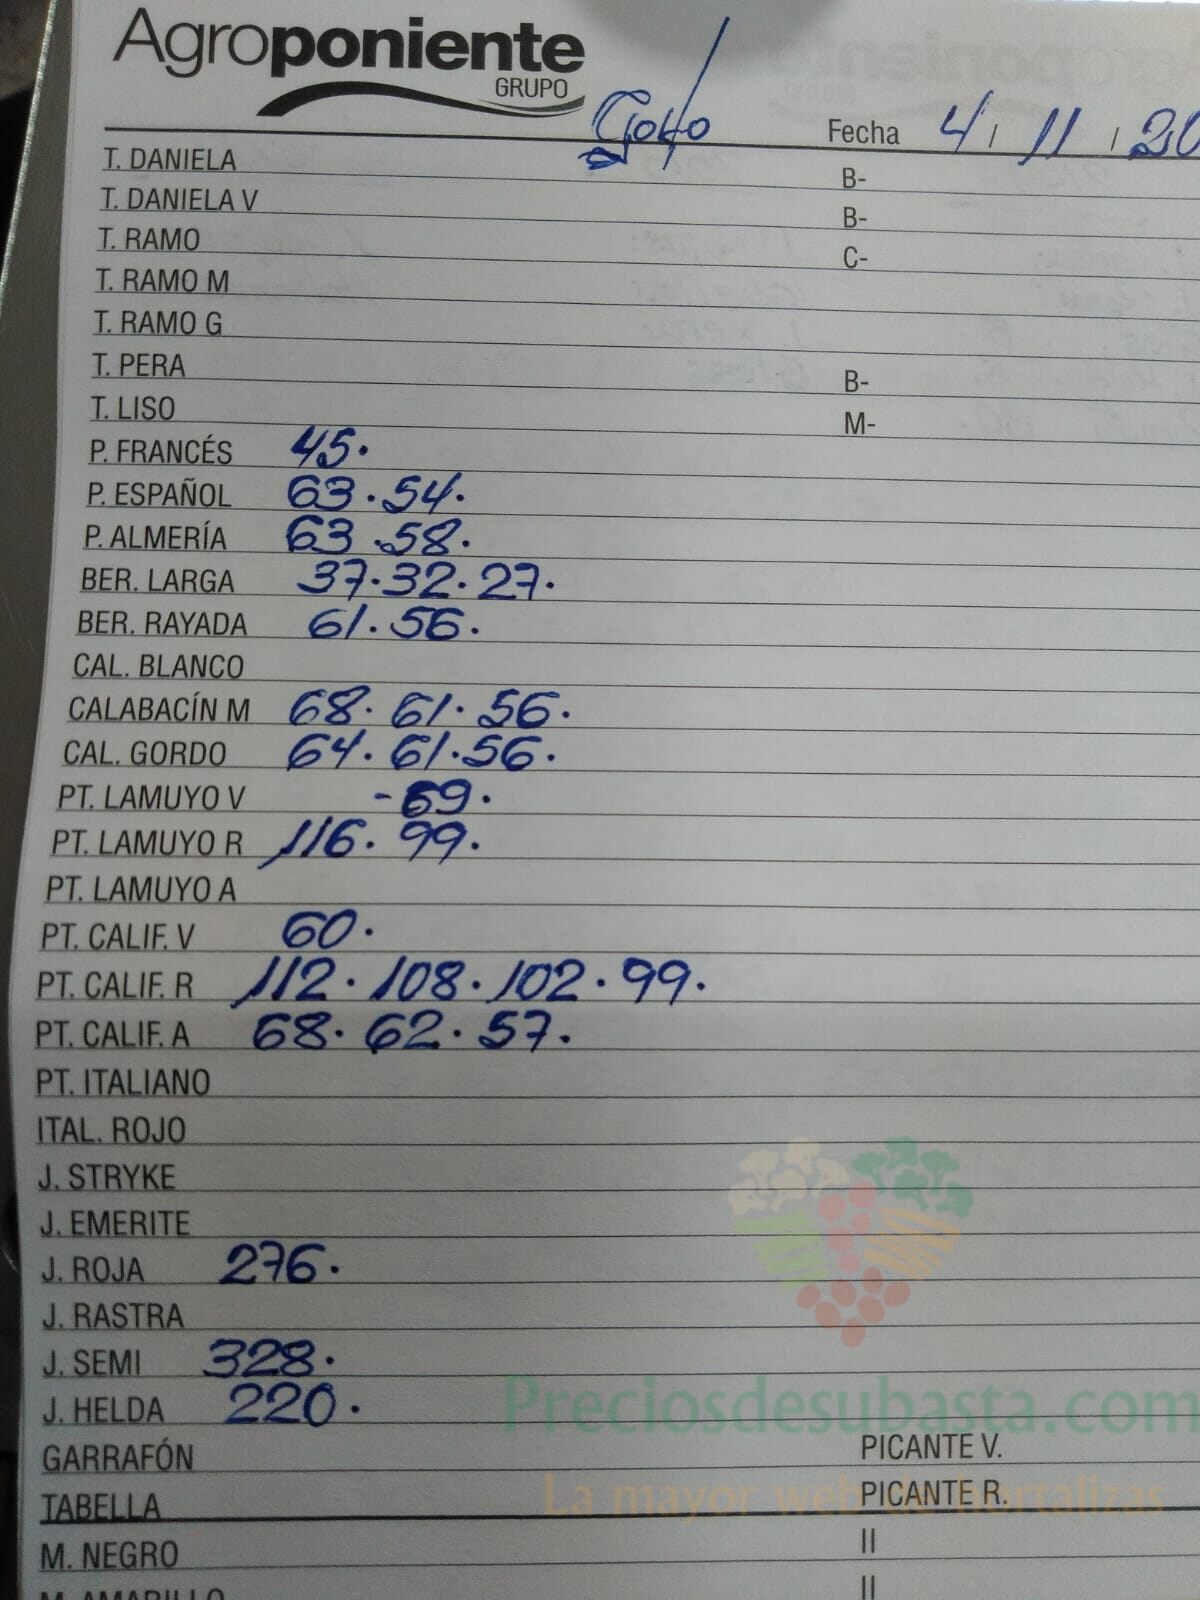 Agroponiente
GRUPO
Goyo Fecha 4 / 11 / 20
T. DANIELA B-
T. DANIELA V B-
T. RAMO C-
T. RAMO M
T. RAMO G
T. PERA B-
T. LISO M-
P. FRANCÉS 45.
P. ESPAÑOL 63.54.
P. ALMERÍA 63.58.
BER. LARGA 37.32.27.
BER. RAYADA 61.56.
CAL. BLANCO
CALABACÍN M 68.61.56.
CAL. GORDO 64.61.56.
PT. LAMUYO V -69.
PT. LAMUYO R 116.99.
PT. LAMUYO A
PT. CALIF. V 60.
PT. CALIF. R 112.108.102.99.
PT. CALIF. A 68.62.57.
PT. ITALIANO
ITAL. ROJO
J. STRYKE
J. EMERITE
J. ROJA 276.
J. RASTRA
J. SEMI 328.
J. HELDA 220.
Preciosdesubasta.com
GARRAFÓN PICANTE V.
La mayor web de hortalizas
TABELLA PICANTE R.
M. NEGRO II
M. AMARILLO II